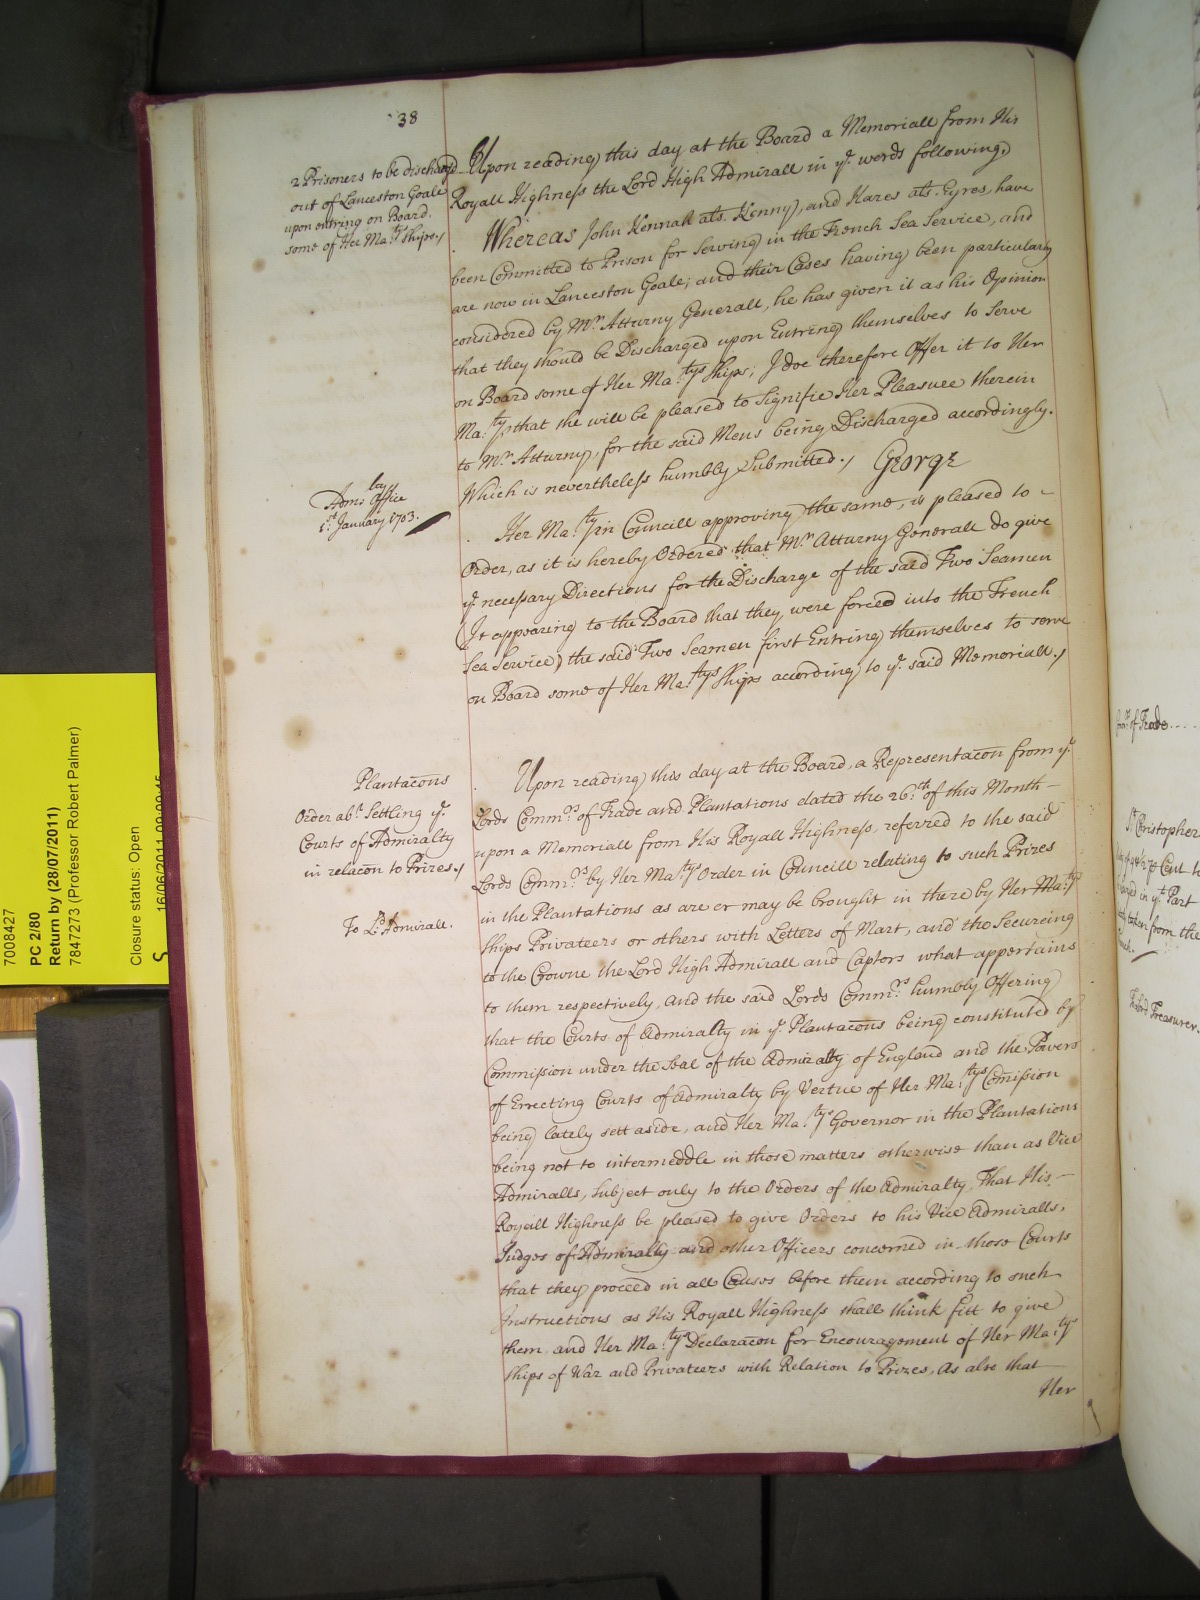 38
2 Prisoners to be discharg'd
out of Lanceston Goale
upon entring on Board
some of Her Ma:tys ships./
Upon reading this day at the Board a Memoriall from His
Royall Highness the Lord High Admirall in ye. words following,
Whereas John Kennah als. Kenny, and Hares als. Eyres, have
been Committed to Prison for Serving in the French Sea Service, and
are now in Lanceston Goale; and their Cases having been particularly
considered by Mr. Atturny Generall, he has given it as his Opinion
that they should be Discharged upon Entring themselves to Serve
on Board some of Her Ma:tys ships; I doe therefore Offer it to Her
Ma:ty, that she will be pleased to Signifie Her Pleasure therein
to Mr. Atturny, for the said Mens being Discharged accordingly.
Which is nevertheless humbly Submitted./ George
Adm:lty Office
1st. January 1703.
Her Ma:ty in Councill approving the same, is pleased to
Order, as it is hereby Ordered that Mr. Atturny Generall do give
ye. necessary Directions for the Discharge of the said Two Seamen
(It appearing to the Board that they were forced into the French
Sea Service) the said Two Seamen first Entring themselves to serve
on Board some of Her Ma:tys ships according to ye. said Memoriall./
Plantacōns
Order abt. Settling ye.
Courts of Admiralty
in relacōn to Prizes./
To Ld. Admirall.
Upon reading this day at the Board, a Representacōn from ye.
Lords Comm:rs of Trade and Plantations dated the 26:th of this Month
upon a Memoriall from His Royall Highness, referred to the said
Lords Comm:rs by Her Ma:tys Order in Councill relating to such Prizes
in the Plantations as are or may be brought in there by Her Ma:tys
ships Privateers or others with Letters of Mart, and the Secureing
to the Crowne the Lord High Admirall and Captors what appertains
to them respectively, and the said Lords Comm:rs humbly Offering
that the Courts of Admiralty in ye. Plantacōns being constituted by
Commission under the Seal of the Admiralty of England and the Powers
of Errecting Courts of Admiralty by Vertue of Her Ma:tys Comission
being lately sett aside, and Her Ma:tys Governor in the Plantations
being not to intermeddle in those matters otherwise than as Vice
Admiralls, Subject only to the Orders of the Admiralty, That His
Royall Highness be pleased to give Orders to his Vice Admiralls,
Judges of Admiralty and other Officers concerned in those Courts
that they proceed in all Causes before them according to such
Instructions as His Royall Highness shall think fitt to give
them, and Her Ma:tys Declaracōn for Encouragement of Her Ma:tys
ships of War and Privateers with Relation to Prizes, As also that
Her
7008427
PC 2/80
Return by (28/07/2011)
7847273 (Professor Robert Palmer)
Closure status: Open
16/06/2011
S
of Trade
St. Christopher
Cent
in ye. Part
taken from the
Treasurer.